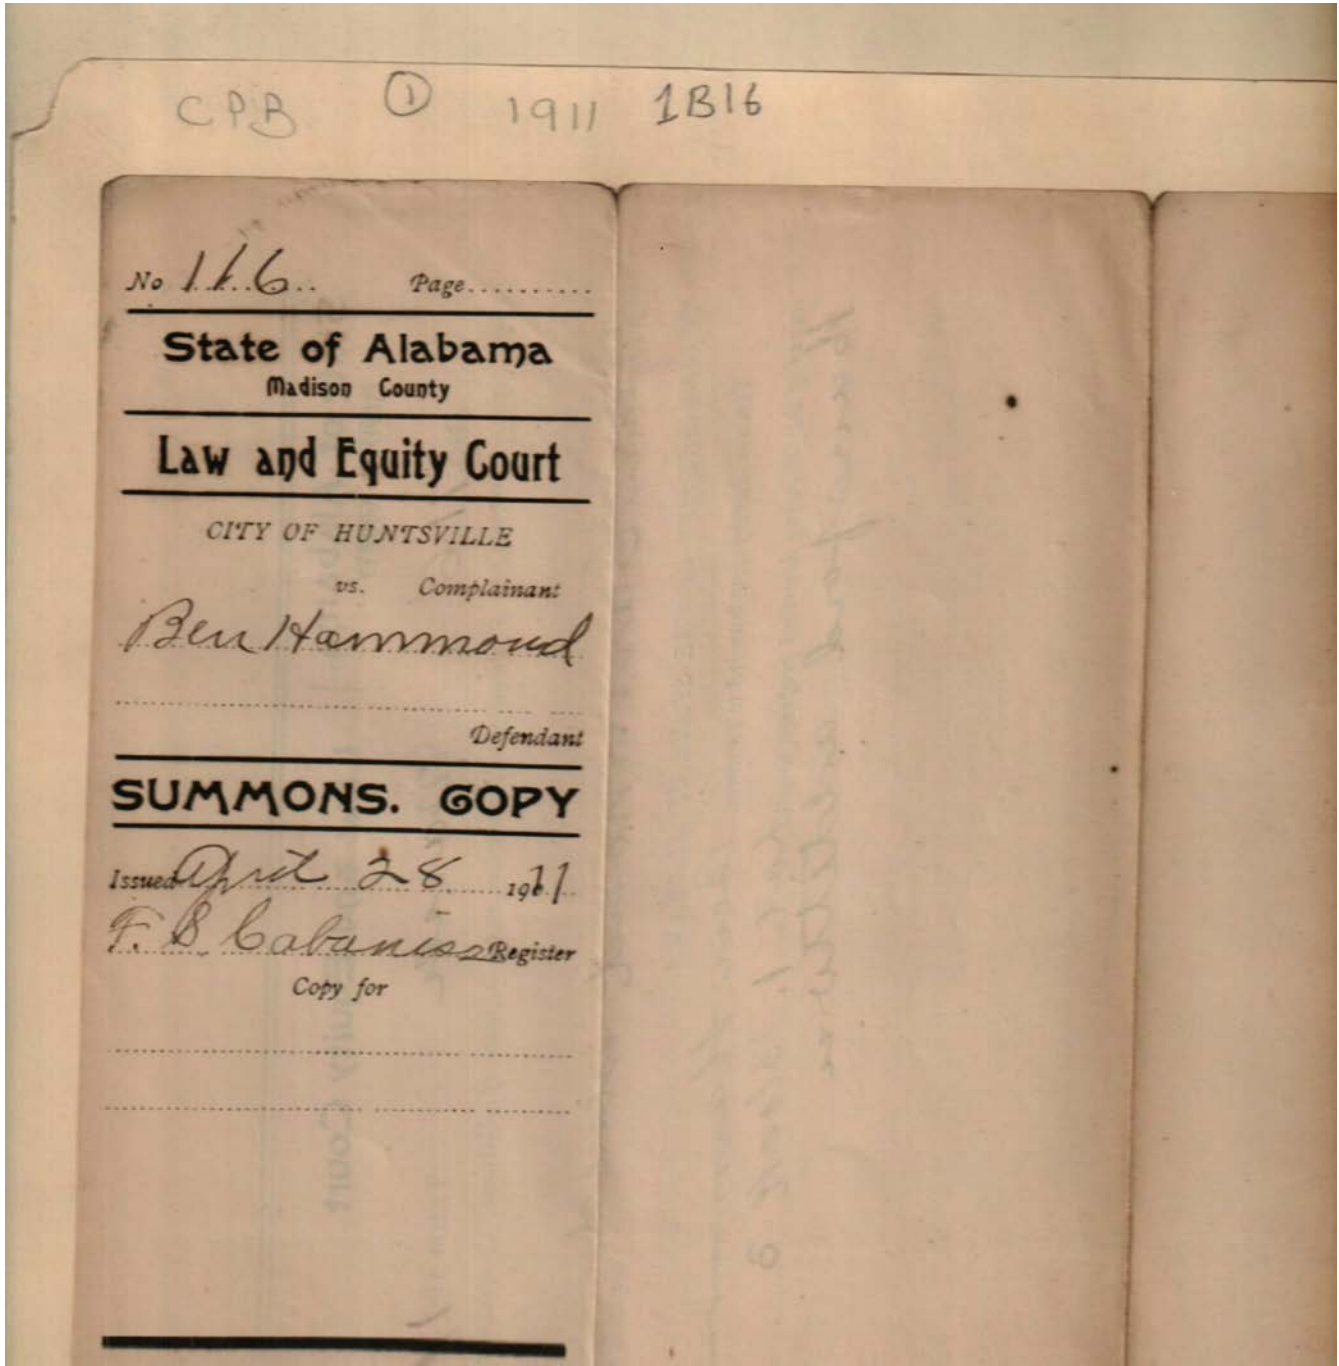 CPB ① 1911 1B16
No 116 Page..........
State of Alabama
Madison County
Law and Equity Court
CITY OF HUNTSVILLE
vs. Complainant
Ben Hammond
Defendant
SUMMONS. COPY
Issued April 28 1911
F. S Cabaniss Register
Copy for